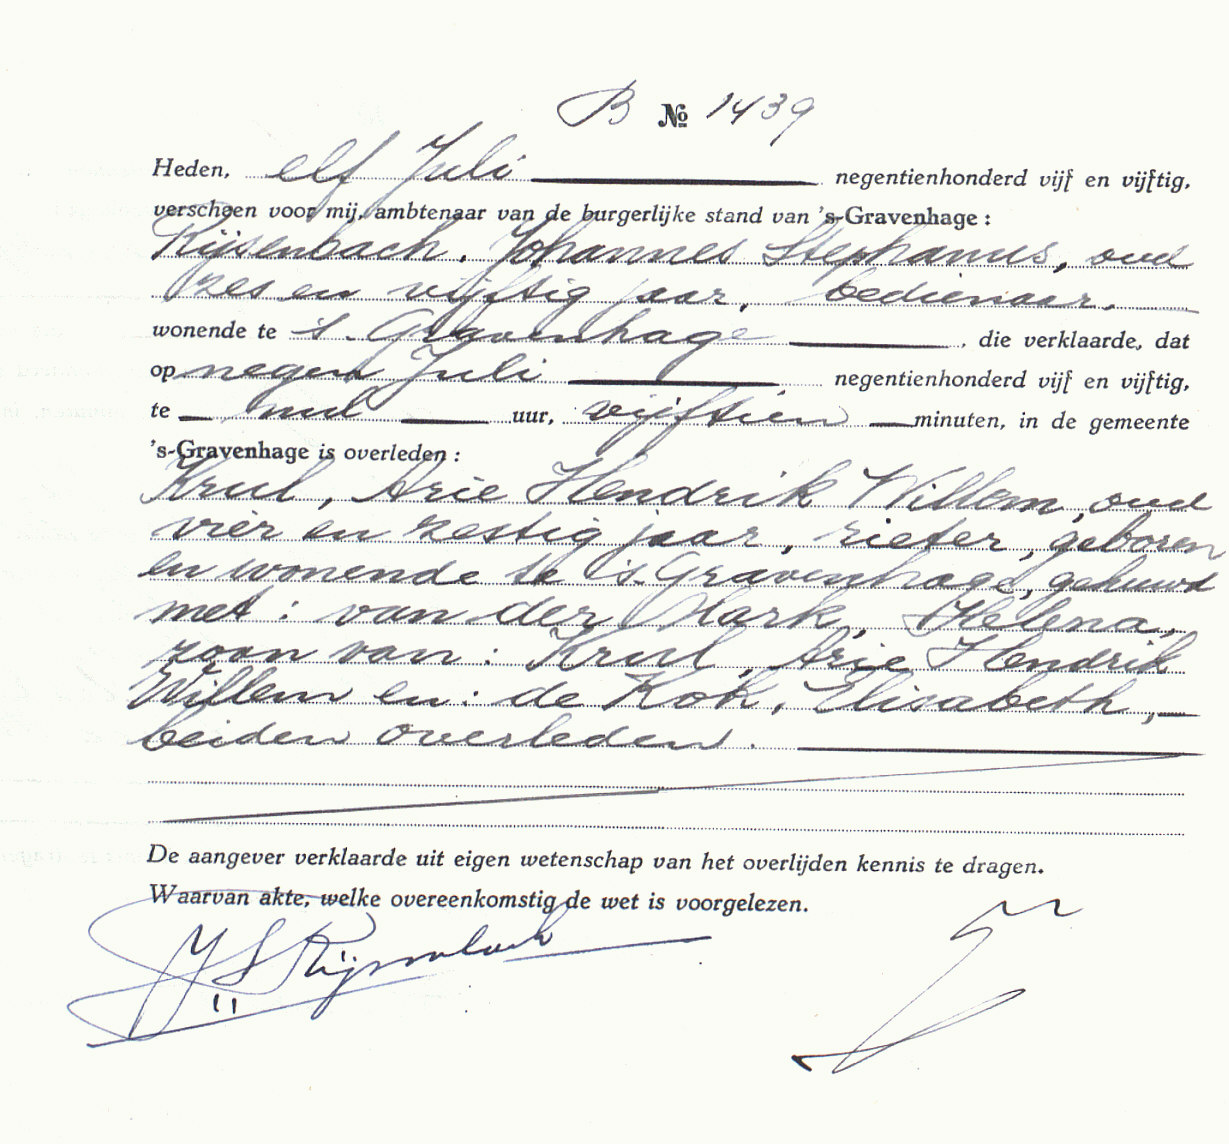 B № 1439
Heden, elf Juli negentienhonderd vijf en vijftig,
verscheen voor mij, ambtenaar van de burgerlijke stand van 's-Gravenhage :
Rijsenbach, Johannes Stephanus, oud
zes en vijftig jaar, bedienaar,
wonende te 's-Gravenhage , die verklaarde, dat
op negen Juli negentienhonderd vijf en vijftig,
te nul uur, vijftien minuten, in de gemeente
's-Gravenhage is overleden :
Krul, Arie Hendrik Willem, oud
vier en zestig jaar, rieter, geboren
en wonende te 's-Gravenhage, gehuwd
met : van der Mark, Helena,
zoon van : Krul, Arie Hendrik
Willem en : de Kok, Elisabeth,
beiden overleden.
De aangever verklaarde uit eigen wetenschap van het overlijden kennis te dragen.
Waarvan akte, welke overeenkomstig de wet is voorgelezen.
J S Rijsenbach